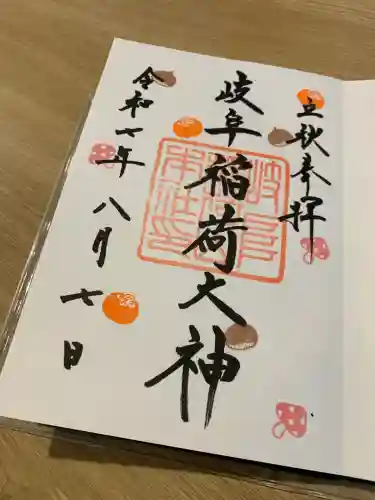 立秋奉拝
岐阜稲荷大神
令和七年八月七日